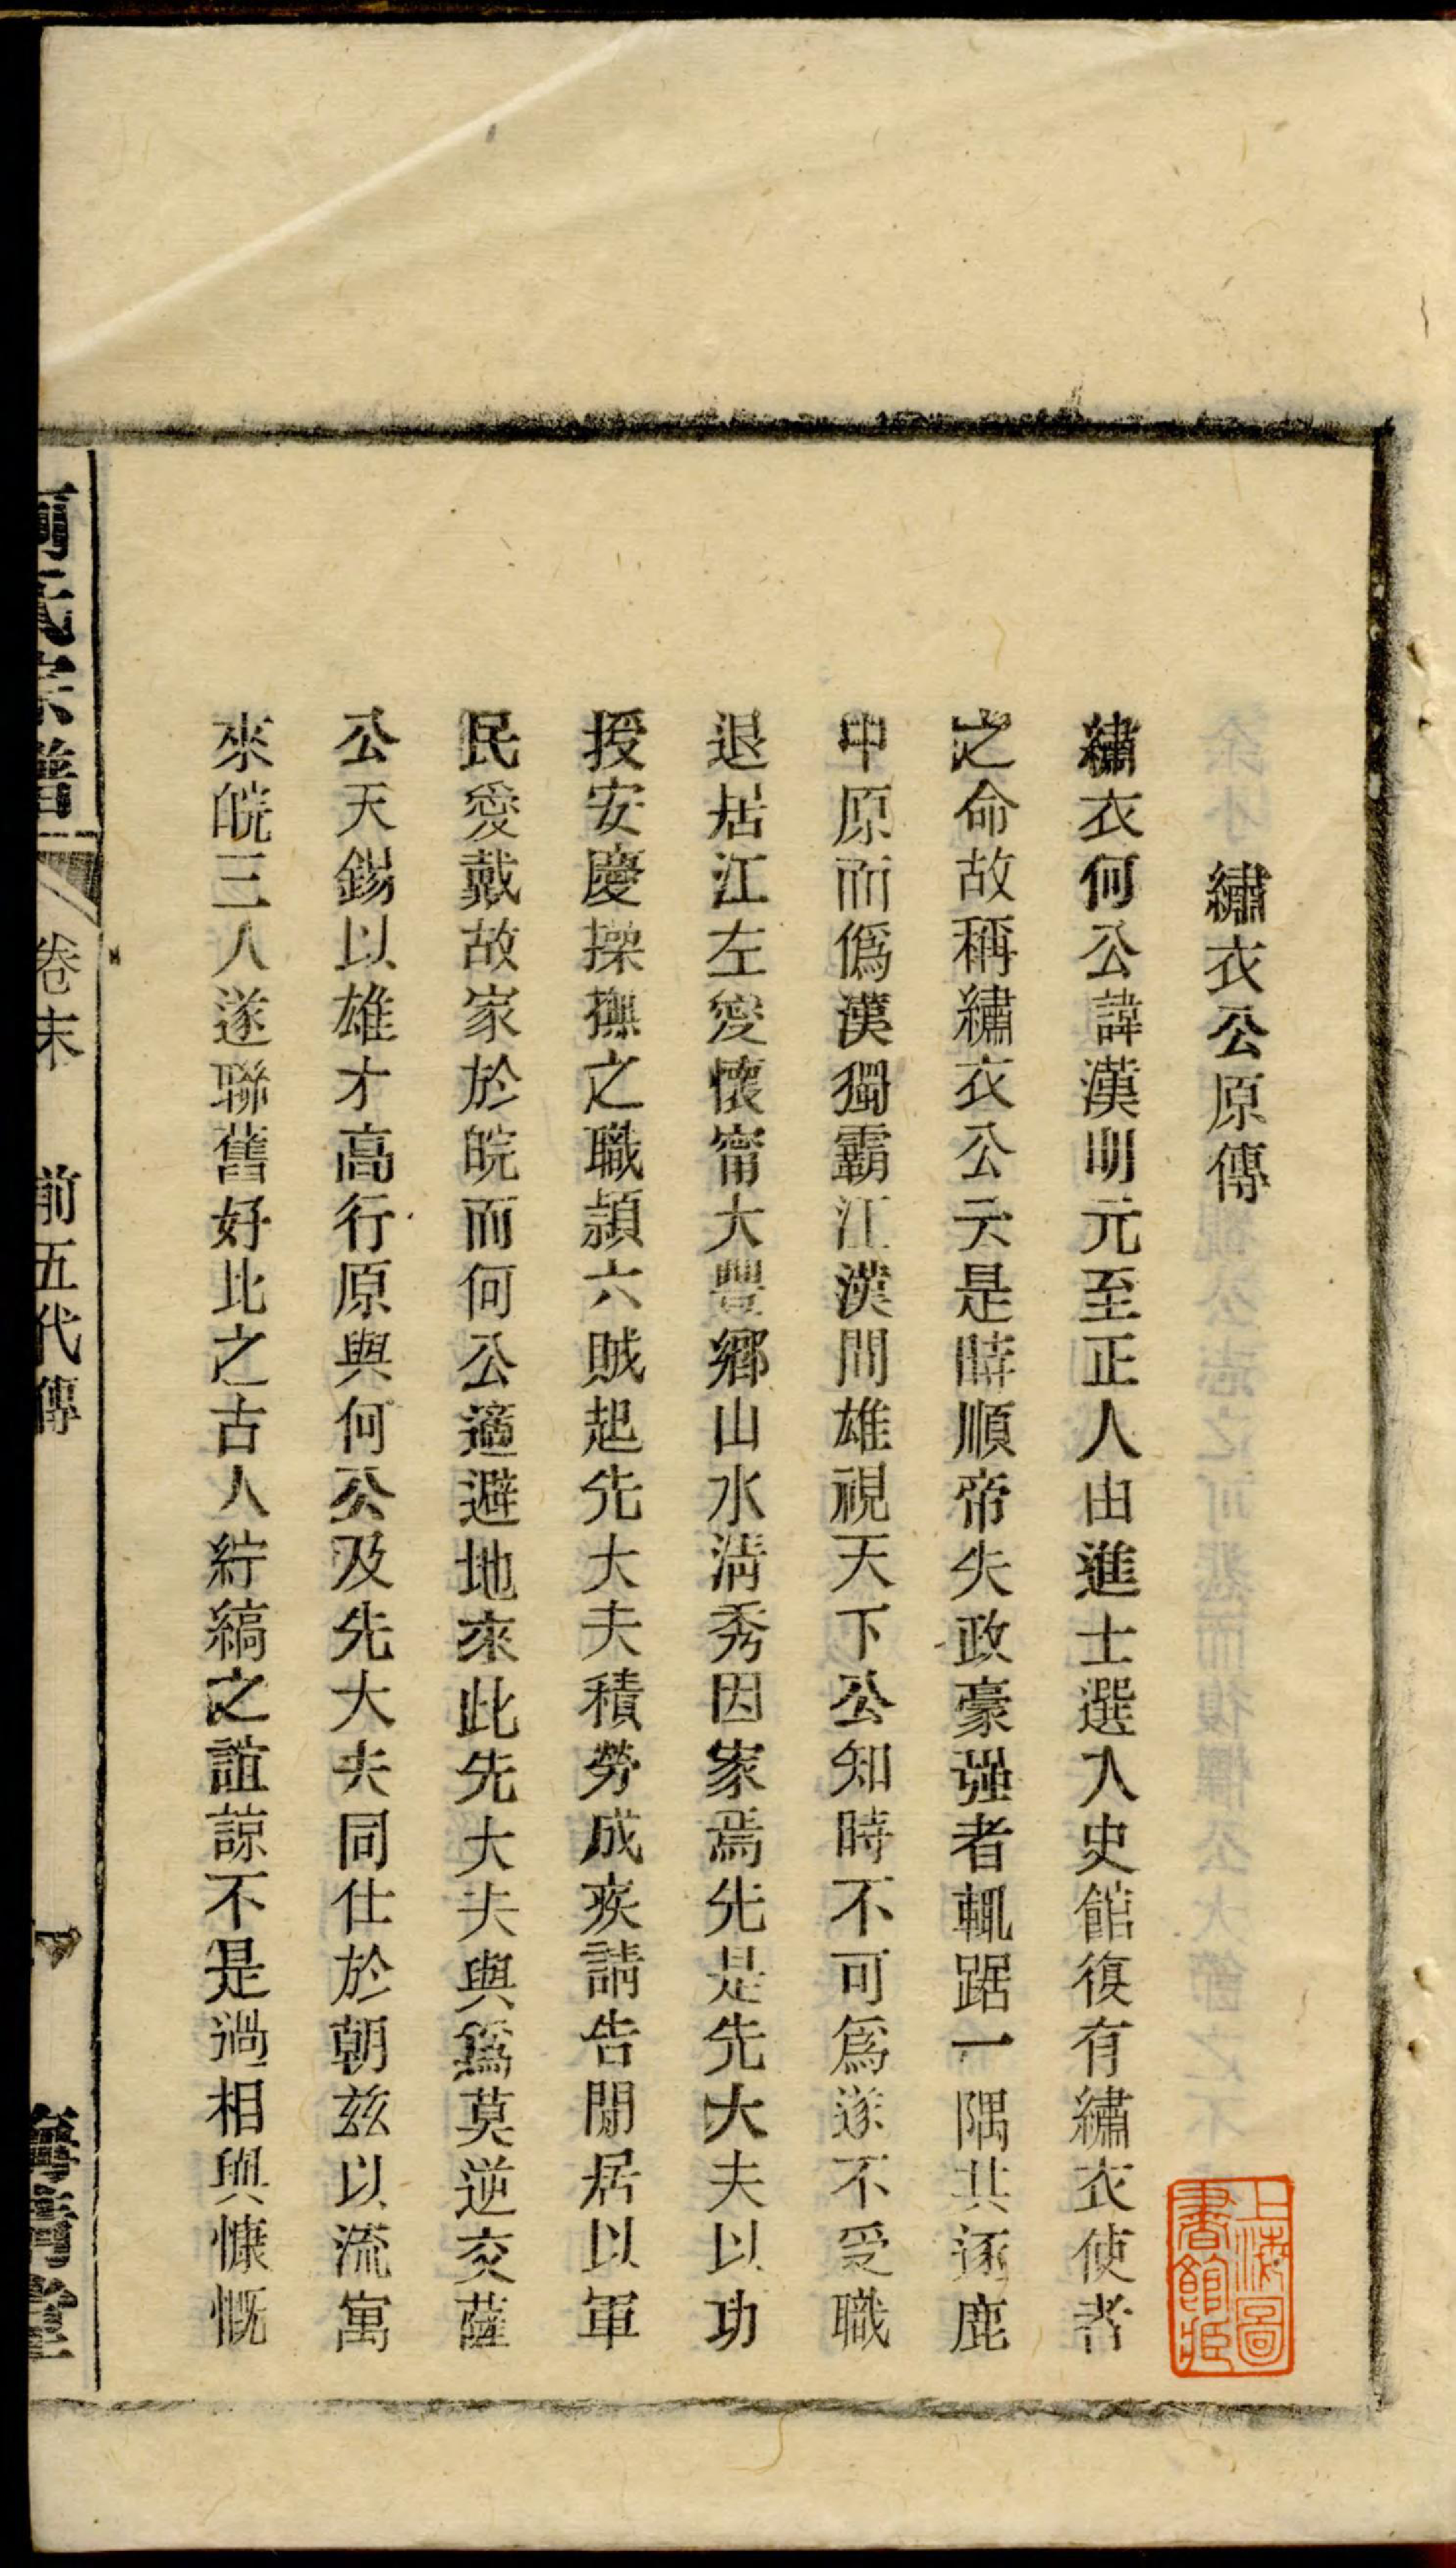 繡衣公原傳
繡衣何公諱漢明元至正人由進士選入史館復有繡衣使者
之命故稱繡衣公云是時順帝失政豪强者輒踞一隅共逐鹿
中原而僞漢獨霸江漢間雄視天下公知時不可爲遂不受職
退居江左愛懷甯大豐鄉山水清秀因家焉先是先大夫以功
授安慶操撫之職潁六賊起先大夫積勞成疾請告閒居以軍
民愛戴故家於皖而何公適避地來此先大夫與爲莫逆交薩
公天錫以雄才高行原與何公及先大夫同仕於朝兹以流寓
來皖三人遂聯舊好比之古人紵縞之誼諒不是過相與慷慨
何氏宗譜
卷末
前五代傳
上海圖書館藏